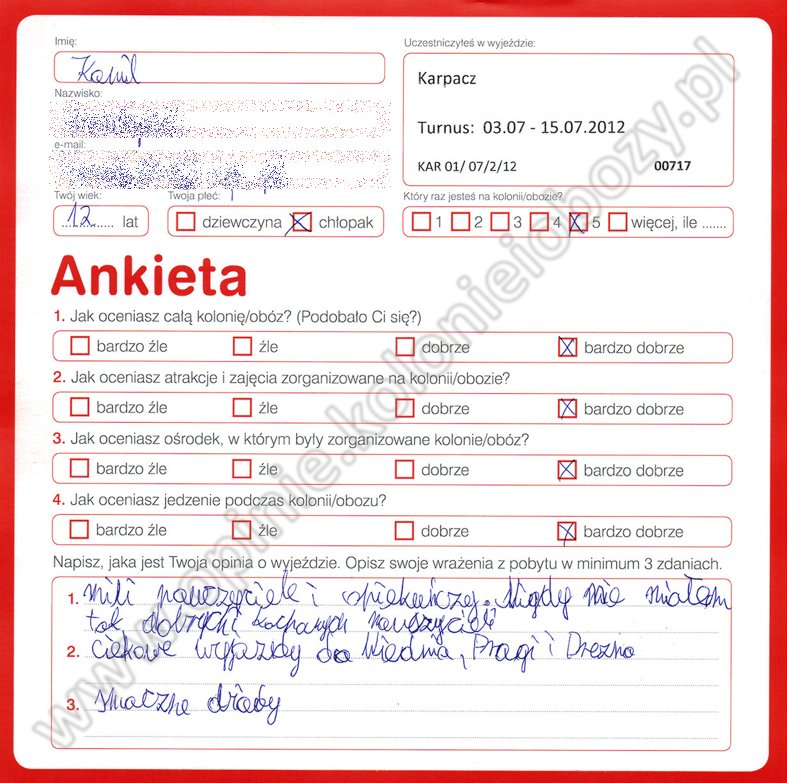 Imię:
Kamil
Uczestniczyłeś w wyjeździe:
Karpacz
Turnus: 03.07 - 15.07.2012
KAR 01/ 07/2/12 00717
Nazwisko:
e-mail:
Twój wiek:
12 lat
Twoja płeć:
dziewczyna chłopak
Który raz jesteś na kolonii/obozie?
1 2 3 4 5 więcej, ile .......
Ankieta
1. Jak oceniasz całą kolonię/obóz? (Podobało Ci się?)
bardzo źle źle dobrze bardzo dobrze
2. Jak oceniasz atrakcje i zajęcia zorganizowane na kolonii/obozie?
bardzo źle źle dobrze bardzo dobrze
3. Jak oceniasz ośrodek, w którym były zorganizowane kolonie/obóz?
bardzo źle źle dobrze bardzo dobrze
4. Jak oceniasz jedzenie podczas kolonii/obozu?
bardzo źle źle dobrze bardzo dobrze
Napisz, jaka jest Twoja opinia o wyjeździe. Opisz swoje wrażenia z pobytu w minimum 3 zdaniach.
1. mili nauczyciele i opiekuńczy. Nigdy nie miałem
tak dobrych i kochanych nauczycieli
2. ciekawe wyjazdy do Wiednia, Pragi i Drezna
3. smaczne obiady
www.opinie.kolonieiobozy.pl